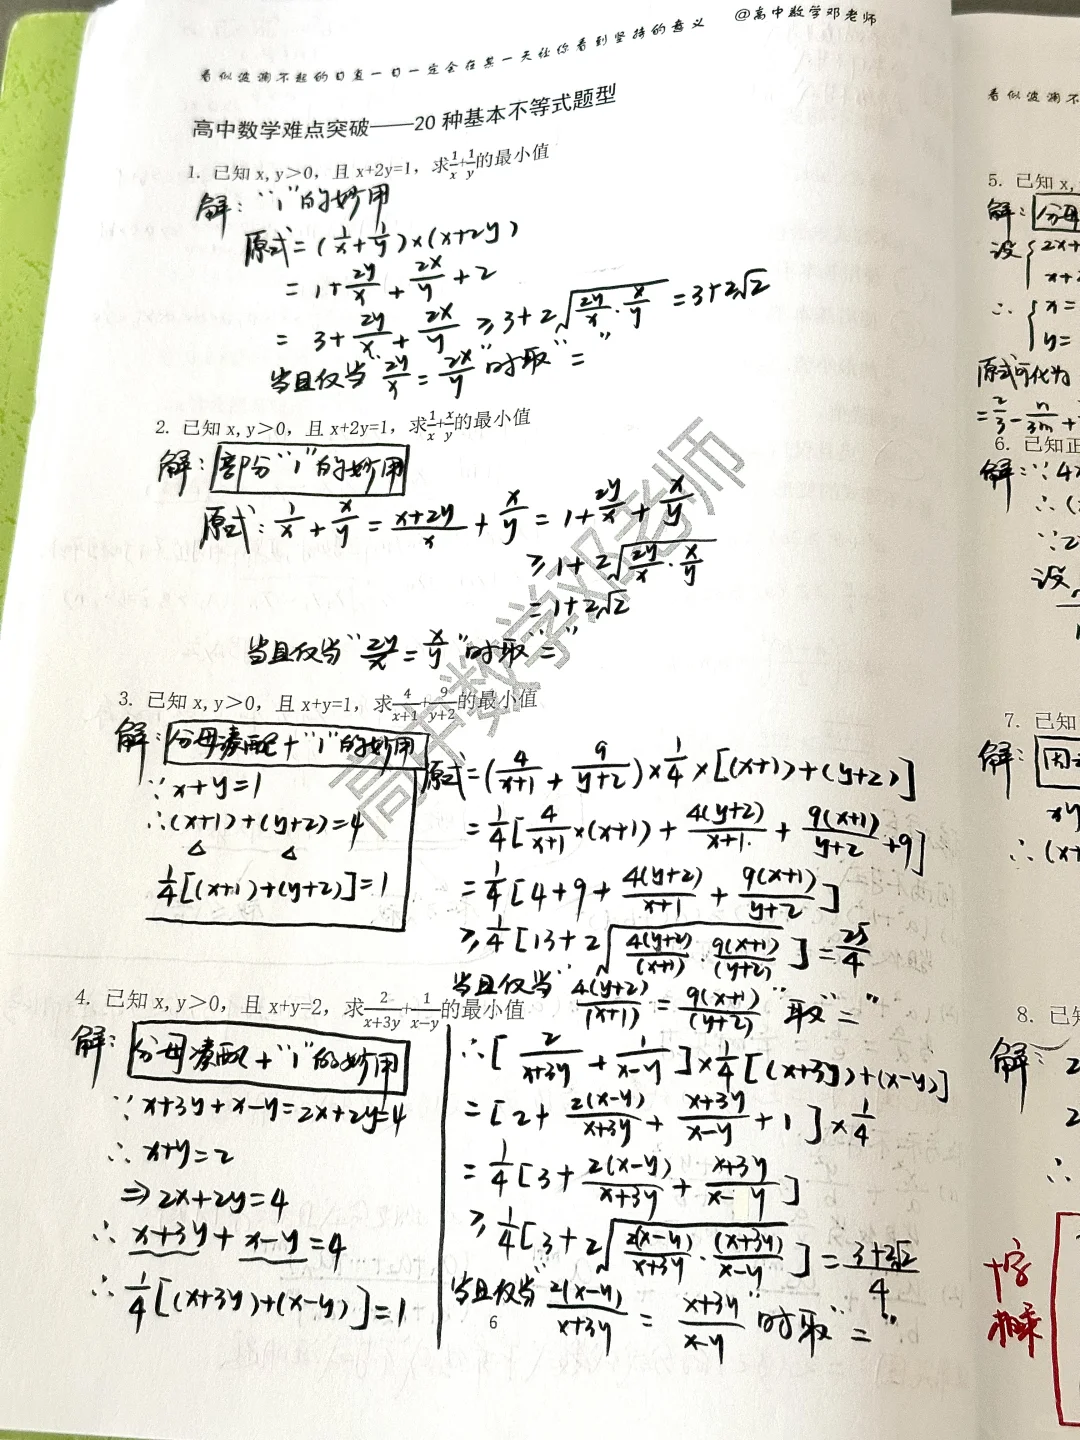 @高中数学邓老师
看似波澜不起的日复一日一定会在某一天让你看到坚持的意义
高中数学难点突破——20 种基本不等式题型
1. 已知 x, y＞0，且 x+2y=1，求1/x+1/y的最小值
解："1"的妙用
原式=(1/x+1/y)×(x+2y)
=1+2y/x+2x/y+2
=3+2y/x+2x/y≥3+2√(2y/x·x/y)=3+2√2
当且仅当"2y/x=2x/y"时取"="
2. 已知 x, y＞0，且 x+2y=1，求1/x+x/y的最小值
解：部分"1"的妙用
原式：1/x+x/y=(x+2y)/x+x/y=1+2y/x+x/y
≥1+2√(2y/x·x/y)
=1+2√2
当且仅当"2y/x=x/y"时取"="
3. 已知 x, y＞0，且 x+y=1，求4/(x+1)+9/(y+2)的最小值
解：分母凑配+"1"的妙用
∵x+y=1
∴(x+1)+(y+2)=4
1/4[(x+1)+(y+2)]=1
原式=(4/(x+1)+9/(y+2))×1/4×[(x+1)+(y+2)]
=1/4[4/(x+1)×(x+1)+4(y+2)/(x+1)+9(x+1)/(y+2)+9]
=1/4[4+9+4(y+2)/(x+1)+9(x+1)/(y+2)]
≥1/4[13+2√(4(y+2)/(x+1)·9(x+1)/(y+2))]=25/4
当且仅当"4(y+2)/(x+1)=9(x+1)/(y+2)"取"="
4. 已知 x, y＞0，且 x+y=2，求2/(x+3y)+1/(x−y)的最小值
解：分母凑配+"1"的妙用
∵x+3y+x-y=2x+2y=4
∴x+y=2
⇒2x+2y=4
∴x+3y+x-y=4
∴1/4[(x+3y)+(x-y)]=1
∴[2/(x+3y)+1/(x-y)]×1/4[(x+3y)+(x-y)]
=[2+2(x-y)/(x+3y)+(x+3y)/(x-y)+1]×1/4
=1/4[3+2(x-y)/(x+3y)+(x+3y)/(x-y)]
≥1/4[3+2√(2(x-y)/(x+3y)·(x+3y)/(x-y))]=(3+2√2)/4
当且仅当"2(x-y)/(x+3y)=(x+3y)/(x-y)"时取"="
6
高中数学邓老师
看似波澜不
5. 已知 x,
解：分母
设{2x+
x+
∴{x=
y=
原式可化为
=2/3-n/3m+
6. 已知正
解：∵4x
∴(
∵2
设
7. 已知
解：因
xy
∴(x+
8. 已知
解：2
2
∴
十字
相乘